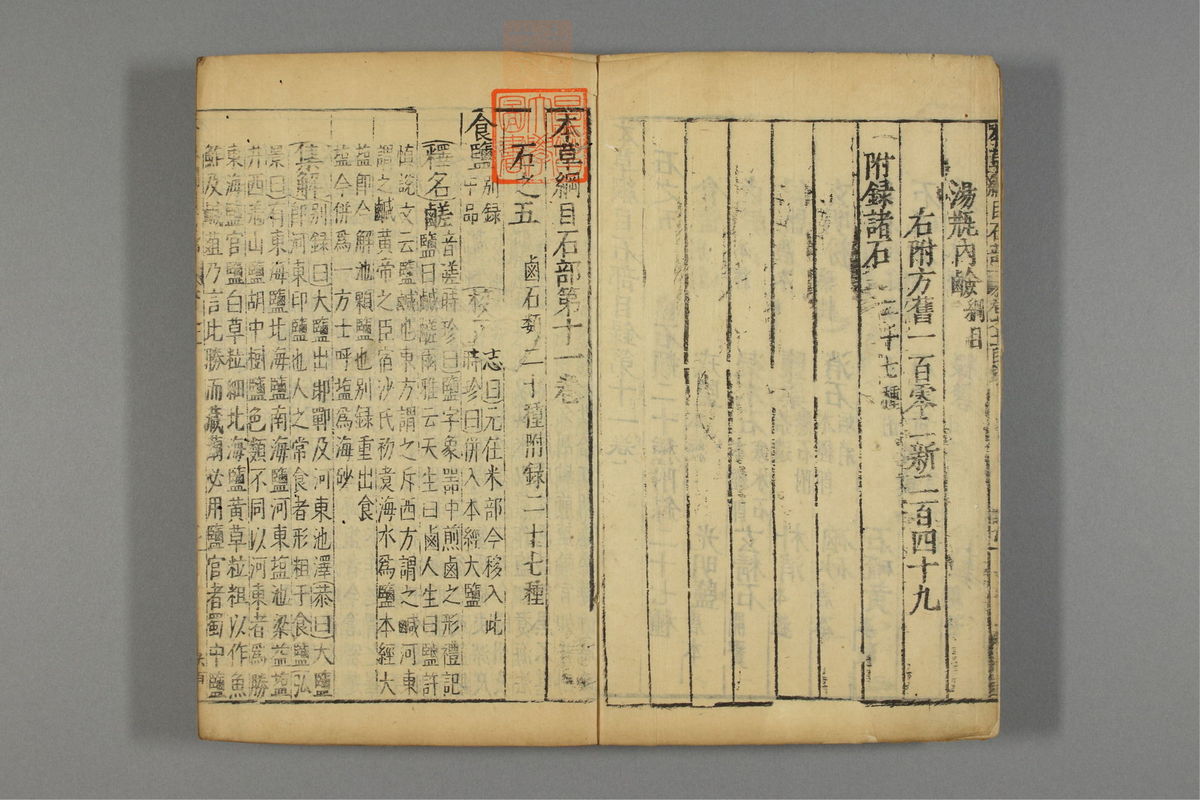 湯瓶内鹼綱目
右附方舊一百零一新二百四十九
附録諸石二十七種
本草綱目石部第十一卷
石之五 鹵石類二十種附録二十七種
食鹽别録中品
志曰元在米部今移入此
時珍曰併入本經大鹽
釋名鹺音醝時珍曰鹽字象器中煎鹵之形禮記
鹽曰鹹鹺爾雅云天生曰鹵人生曰鹽許
慎説文云鹽鹹也東方謂之斥西方謂之鹹河東
謂之鹹黄帝之臣宿沙氏初煑海水爲鹽本經大
鹽即今解池顆鹽也别録重出食
鹽今併爲一方士呼鹽爲海砂
集解别録曰大鹽出邯鄲及河東池澤恭曰大鹽
即河東印鹽也人之常食者形粗于食鹽弘
景曰有東海鹽北海鹽南海鹽河東鹽池梁益鹽
井西羌山鹽胡中樹鹽色類不同以河東者爲勝
東海鹽官鹽白草粒細北海鹽黄草粒粗以作魚
鮓及鹹菹乃言北勝而藏繭必用鹽官者蜀中鹽